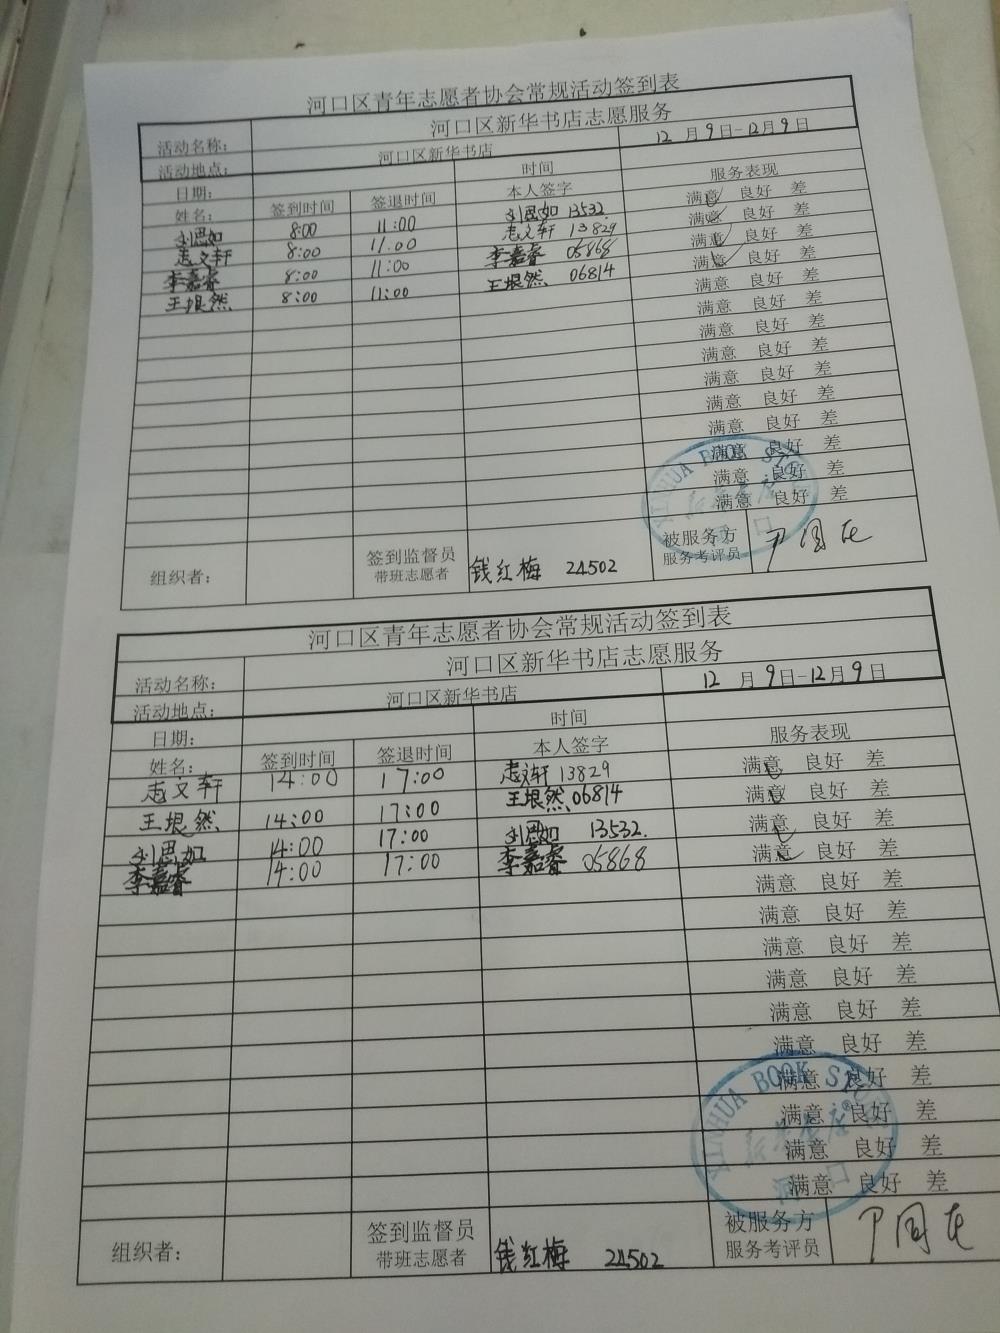 河口区青年志愿者协会常规活动签到表
活动名称: 河口区新华书店志愿服务
活动地点: 河口区新华书店 12 月 9 日-12 月 9 日
日期: 时间
姓名: 签到时间 签退时间 本人签字 服务表现
刘思如 8:00 11:00 刘思如 13532. 满意 良好 差
志文轩 8:00 11:00 志文轩 13829 满意 良好 差
李嘉睿 8:00 11:00 李嘉睿 05868 满意 良好 差
王垠然 8:00 11:00 王垠然 06814 满意 良好 差
满意 良好 差
满意 良好 差
满意 良好 差
满意 良好 差
满意 良好 差
满意 良好 差
满意 良好 差
满意 良好 差
满意 良好 差
满意 良好 差
XINHUA BOOK STORE
新华书店
河口
组织者: 签到监督员 钱红梅 24502 被服务方
带班志愿者 服务考评员
河口区青年志愿者协会常规活动签到表
活动名称: 河口区新华书店志愿服务
活动地点: 河口区新华书店 12 月 9 日-12 月 9 日
日期: 时间
姓名: 签到时间 签退时间 本人签字 服务表现
志文轩 14:00 17:00 志文轩 13829 满意 良好 差
王垠然 14:00 17:00 王垠然 06814 满意 良好 差
刘思如 14:00 17:00 刘思如 13532. 满意 良好 差
李嘉睿 14:00 17:00 李嘉睿 05868 满意 良好 差
满意 良好 差
满意 良好 差
满意 良好 差
满意 良好 差
满意 良好 差
满意 良好 差
满意 良好 差
满意 良好 差
满意 良好 差
满意 良好 差
XINHUA BOOK STORE
新华书店
河口
组织者: 签到监督员 钱红梅 24502 被服务方
带班志愿者 服务考评员